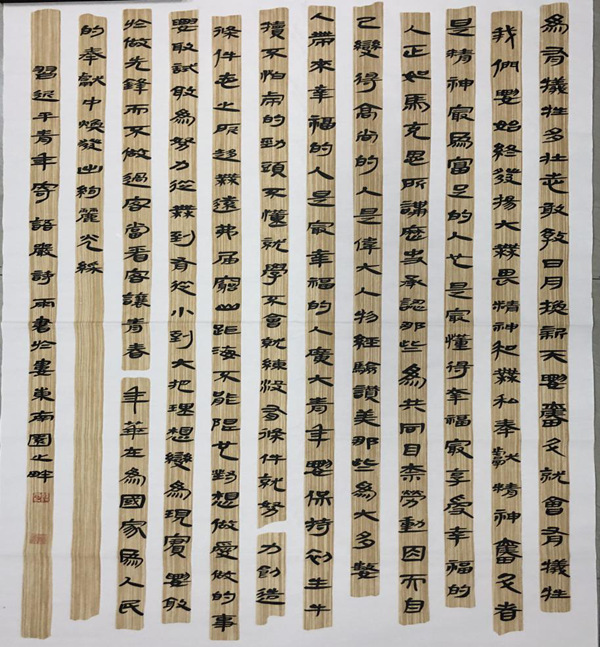 為有犧牲多壯志敢教日月換新天要奮鬥就會有犧牲
我們要始終發揚大無畏精神和無私奉獻精神奮鬥者
是精神最為富足的人也是最懂得幸福最享受幸福的
人正如馬克思所講歷史承認那些為共同目標勞動因而自
己變得高尚的人是偉大人物經驗讚美那些為大多數
人帶來幸福的人是最幸福的人廣大青年要保持初生牛
犢不怕虎的勁頭不懂就學不會就練沒有條件就努力創造
條件志之所趨無遠弗屆窮山距海不能限也對想做愛做的事
要敢試敢為努力從無到有從小到大把理想變為現實要敢
於做先鋒而不做過客當看客讓青春年華在為國家為人民
的奉獻中煥發出絢麗光彩
習近平青年寄語嚴詩雨書於婁東南園之畔